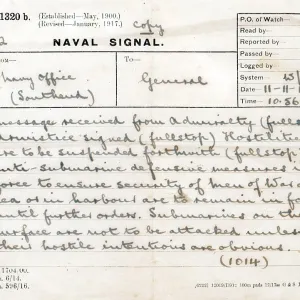 1320 b. (Established—May, 1900.)
(Revised—January, 1917.) copy
NAVAL SIGNAL.
P.O. of Watch—
Read by—
Reported by—
Passed by—
Logged by—
System W
Date 11-11-1
Time 10.56
Navy Office
(Southend)
To General
message received from Admiralty (fulls
Armistice signed (fullstop) Hostilities
are to be suspended forthwith (fullstop)
Anti-submarine defensive measures in
force to ensure security of men of War o
sea or in harbour are to remain in fo
until further orders. Submarines on the
surface are not to be attacked unless
their hostile intentions are obvious.
(1014)
1704/00.
6/14.
596/16.